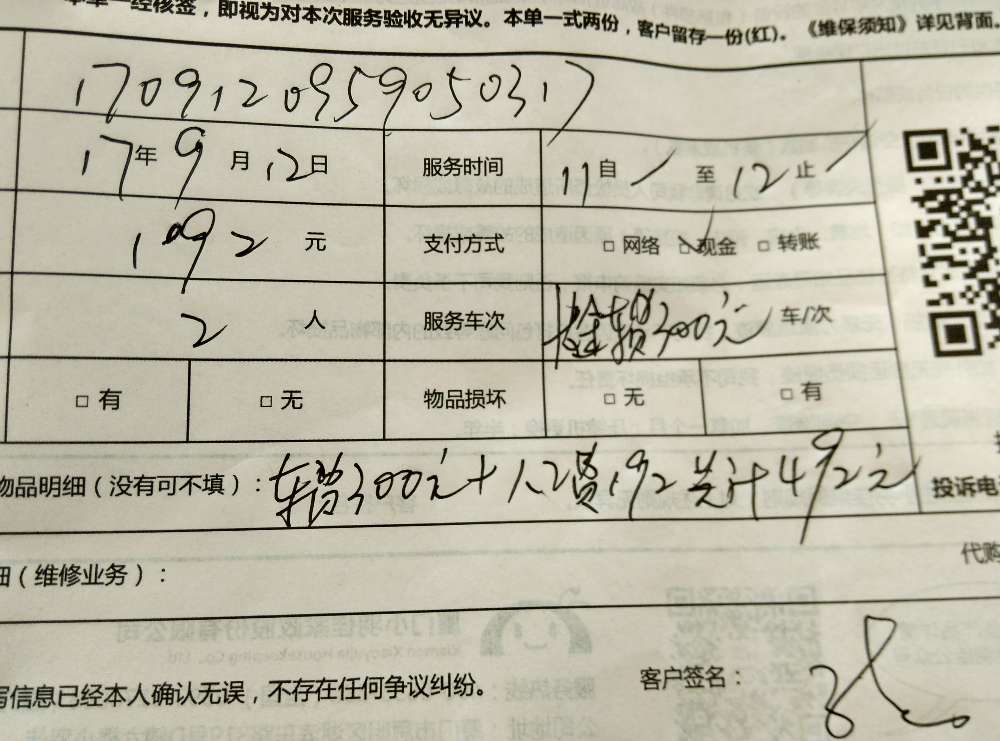 本单一经核签，即视为对本次服务验收无异议。本单一式两份，客户留存一份(红)。《维保须知》详见背面。
1709120959050317
17年 9 月 12日 服务时间 11自 至 12 止
192 元 支付方式 □ 网络 □ 现金 □ 转账
2 人 服务车次 300元 车/次
□ 有 □ 无 物品损坏 □ 无 □ 有
物品明细（没有可不填）：车费300元+人工费192 共计492元 投诉电
代购
细（维修业务）：
写信息已经本人确认无误，不存在任何争议纠纷。 客户签名：